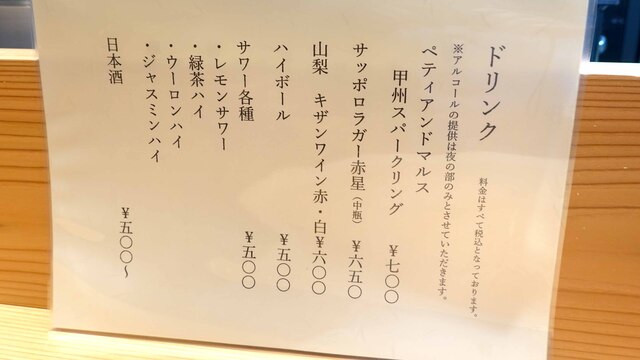 ドリンク
料金はすべて税込となっております。
※アルコールの提供は夜の部のみとさせていただきます。
ペティアンドマルス
甲州スパークリング ￥七〇〇
サッポロラガー赤星(中瓶) ￥六五〇
山梨 キザンワイン赤・白￥六〇〇
ハイボール ￥五〇〇
サワー各種 ￥五〇〇
・レモンサワー
・緑茶ハイ
・ウーロンハイ
・ジャスミンハイ
日本酒 ￥五〇〇〜